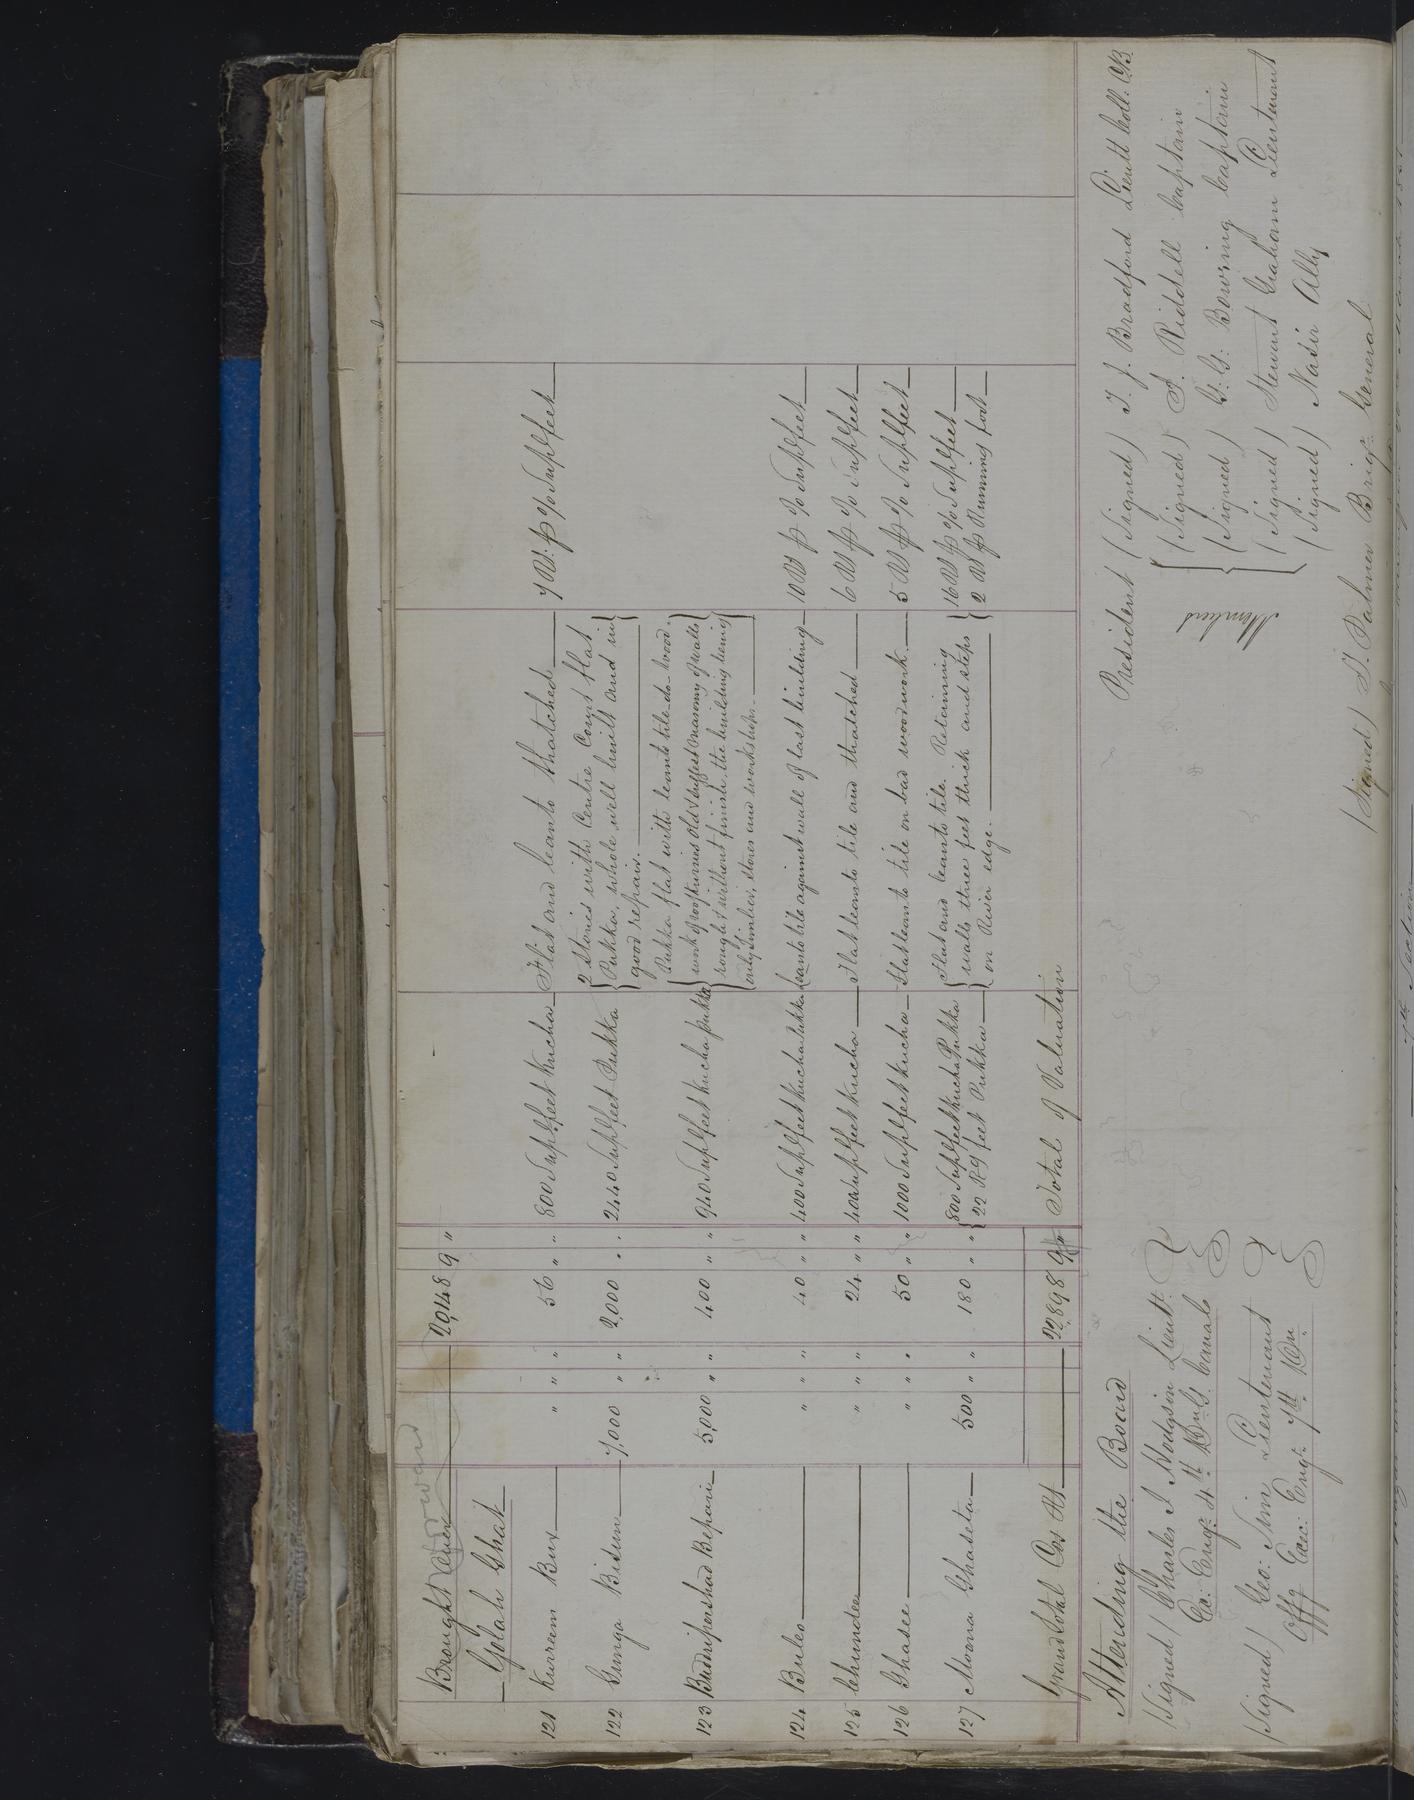 Brought Over 20,148 9 "
Golah Ghat
121 Kurreem Bux " " " 56 " " 800 Supl feet Kucha Flat and leanto thatched 7 Rs. ⅌ % Supl feet
122 Gunga Bisun 7,000 " " 2,000 " " 2440 Supl feet Pukka 2 Stories with Centre Court flat
Pukka, whole well built and in
good repair.
123 Budripershad Bepari 5,000 " " 400 " " 940 Supl feet Kucha pukka Pukka flat with leanto tile do wood
work of roof kurries Old & Masonry of walls
rough & without finish, the building being
only Simlier, stores and workshops.
124 Buleo " " " 40 " " 400 Supl feet Kucha Pukka Leanto tile against wall of last building 10 Rs ⅌ % Supl feet
125 Chundee " " " 24 " " 400 Supl feet Kucha Flat leanto tile and thatched 6 Rs ⅌ % Supl feet
126 Ghasee " " " 50 " " 1000 Supl feet Kucha Flat leanto tile on bad woodwork 5 Rs ⅌ % Supl feet
127 Moona Ghaseta 500 " " 180 " " 800 Supl feet Kucha Pukka Flat and leanto tile. Retaining 16 Rs ⅌ % Supl feet
22 Rg feet Pukka walls three feet thick and steps 2 Rs ⅌ Running foot
on River edge.
Grand Total Cos Rs 22,898 9 Total of Valuation
Attending the Board
Signed) Charles J Hodgson Lieutt.
Ex: Engr. 4th Dn G. Canals
Signed) Geo: Sim Lieutenant
Offg Exec: Engr. 7th Dn.
President (Signed) J. F. Bradford Lieutt Coll. CB
Members (Signed) T. Riddell Captain
(Signed) G. G. Bowring Captain
(Signed) Stewart Graham Lieutenant
(Signed) Nasir Ally
(Signed) T. Palmer Brigr. General
7th Section